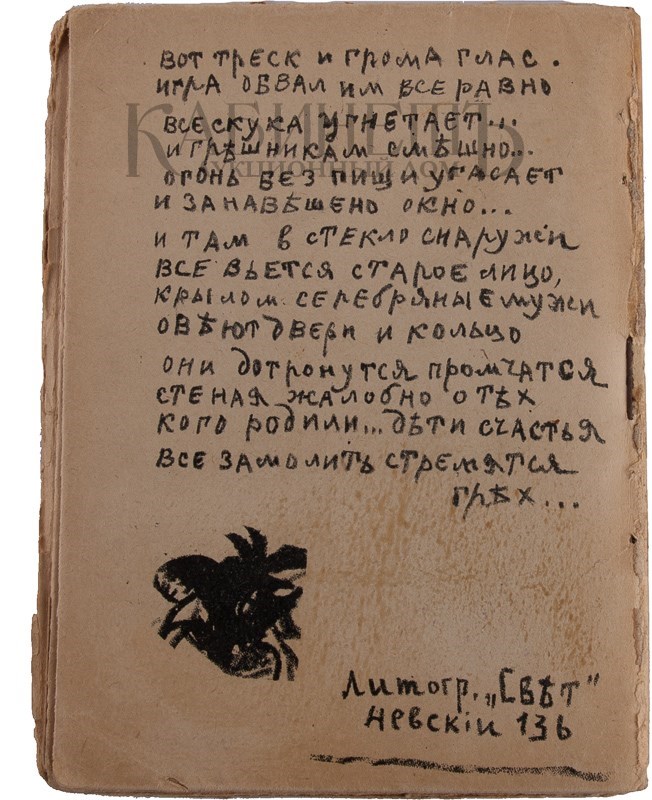 вот треск и грома глас.
игра обвал им все равно
КАБИНЕТЪ
все скука угнетает...
и грѣшникам смѣшно...
АУКЦИОННЫЙ ДОМ
огонь без пищи угасает
и занавѣшено окно...
и там в стекло снаружи
все вьется старое лицо,
крылом серебряные мужи
овѣют двери и кольцо
они дотронутся промчатся
стеная жалобно о тѣх
кого родили... дѣти счастья
все замолить стремятся
грѣх...
Литогр. „Свѣт"
Невскiй 136